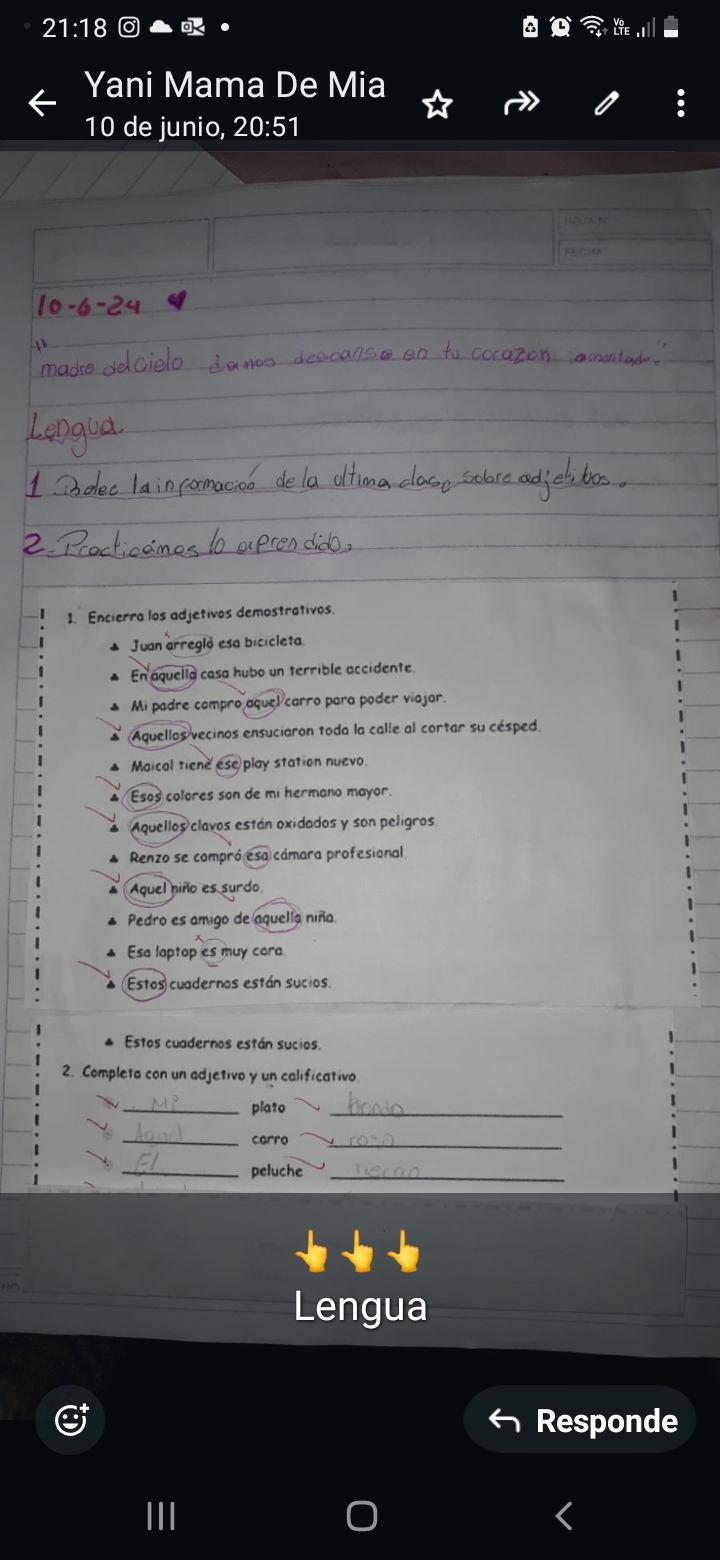 21:18
Vo LTE
Yani Mama De Mia
10 de junio, 20:51
HOJA N°
FECHA
10-6-24
"madre del cielo danos descanso en tu corazón
Lengua
1 la informació de la ultima clase sobre adjetibos.
2. Practicamos lo aprendido.
1. Encierra los adjetivos demostrativos.
Juan arregló esa bicicleta.
En aquella casa hubo un terrible accidente.
Mi padre compro aquel carro para poder viajar.
Aquellos vecinos ensuciaron toda la calle al cortar su césped.
Maicol tiene ese play station nuevo.
Esos colores son de mi hermano mayor.
Aquellos clavos están oxidados y son peligros.
Renzo se compró esa cámara profesional.
Aquel niño es surdo.
Pedro es amigo de aquella niña.
Esa laptop es muy cara.
Estos cuadernos están sucios.
Estos cuadernos están sucios.
2. Completa con un adjetivo y un calificativo.
Mi plato hondo
Aquel carro rosa
El peluche tierno
👆👆👆
Lengua
NO
Responde